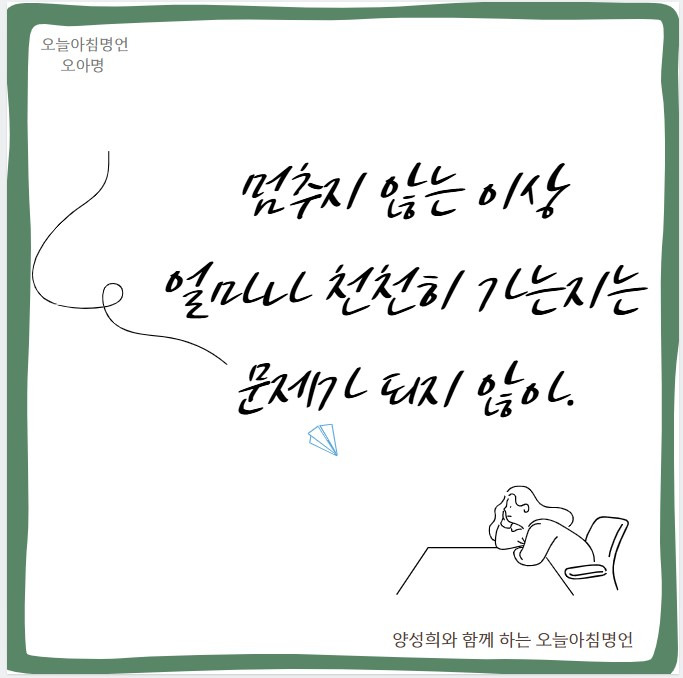 오늘아침명언
오아명
멈추지 않는 이상
얼마나 천천히 가는지는
문제가 되지 않아.
양성희와 함께 하는 오늘아침명언